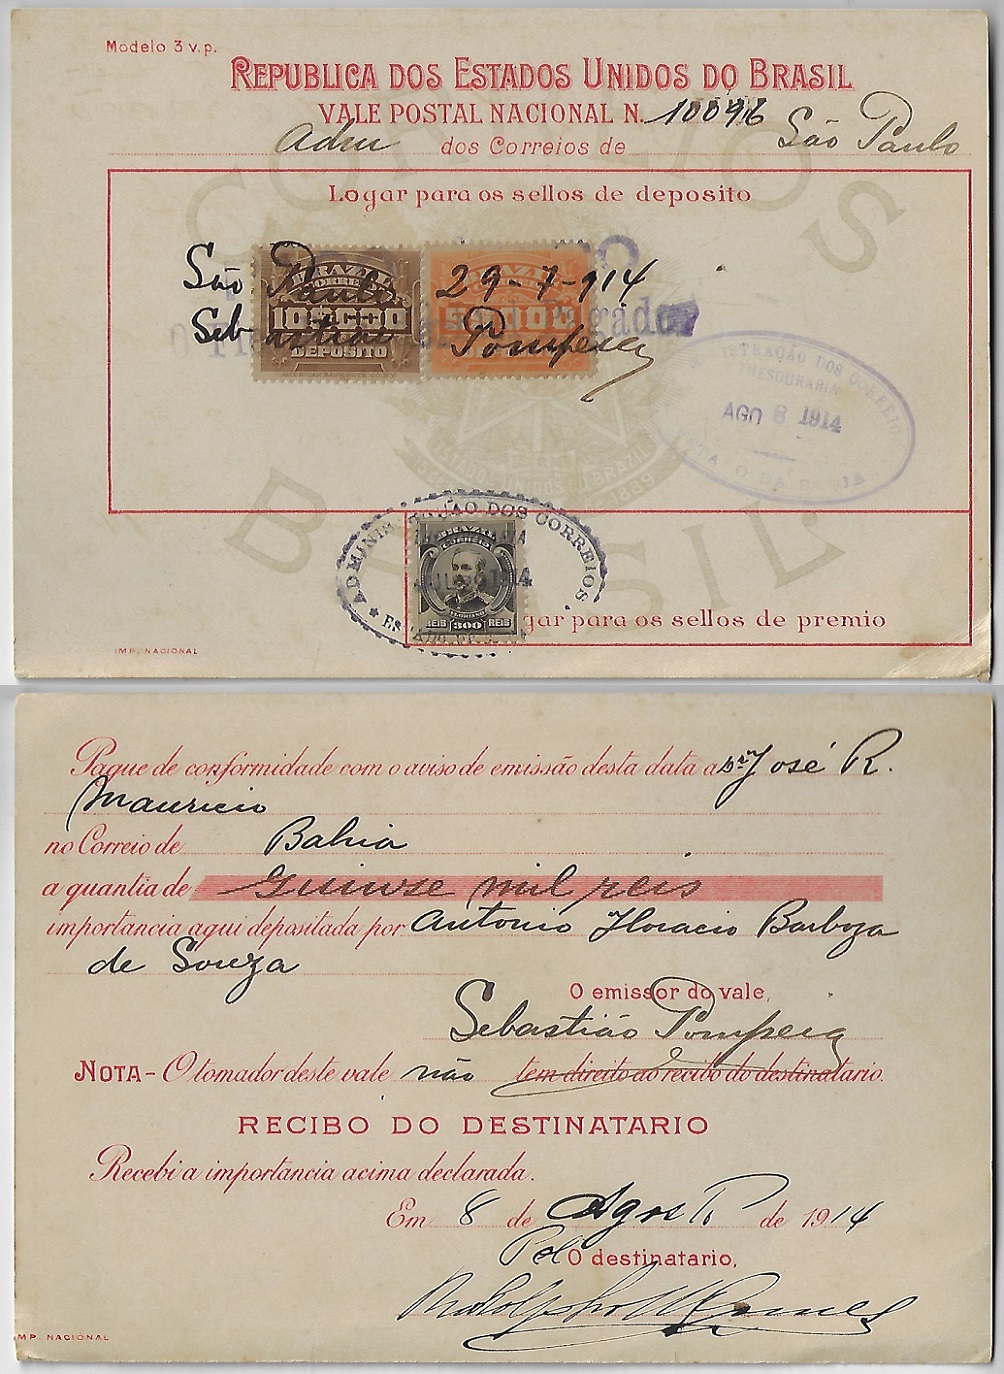 Modelo 3 v.p.
REPUBLICA DOS ESTADOS UNIDOS DO BRASIL
VALE POSTAL NACIONAL N. 10096
Adm dos Correios de São Paulo
CORREIOS
Logar para os sellos de deposito
São Paulo 29-7-914
Sebastião Pompeia
BRAZIL
CORREIO
10$000
DEPOSITO
BRAZIL
Pagador
ADMINISTRAÇÃO DOS CORREIOS
THESOURARIA
AGO 8 1914
ESTADOS UNIDOS DO BRAZIL
1889
BRASIL
ADMINISTRAÇÃO DOS CORREIOS
BRAZIL
CORREIO
FLORIANO
REIS 300 REIS
gar para os sellos de premio
IMP. NACIONAL
Pague de conformidade com o aviso de emissão desta data a Snr José R.
Mauricio
no Correio de Bahia
a quantia de Quinze mil reis
importancia aqui depositada por Antonio Horacio Barboza
de Souza
O emissor do vale,
Sebastião Pompeia
NOTA - O tomador deste vale não tem direito ao recibo do destinatario.
RECIBO DO DESTINATARIO
Recebi a importancia acima declarada.
Em 8 de Agosto de 1914
Pel O destinatario,
MP. NACIONAL